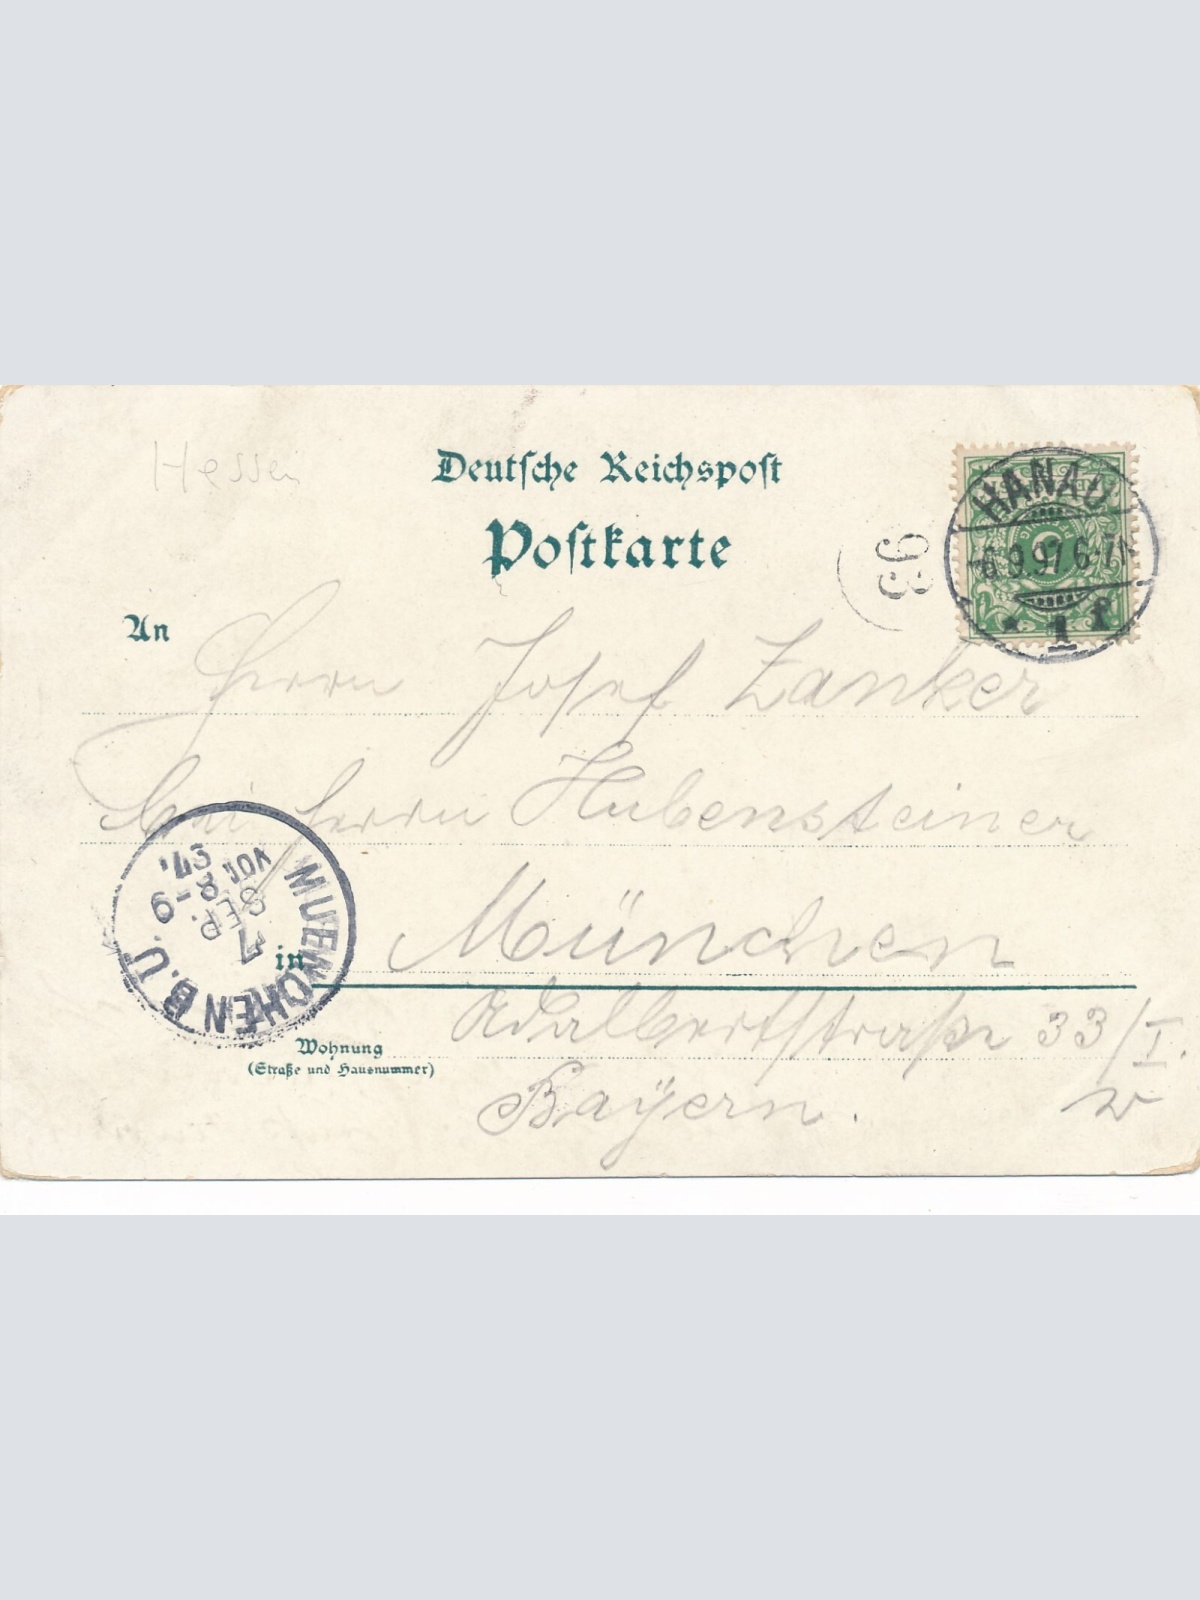 Hessen
Deutsche Reichspost
Postkarte
HANAU
6.9.97.6-7N
* 1 f
93
An
Herrn Josef Zanker
bei Herrn Hubensteiner
MUENCHEN B.U.
7
SEP.
8-9
VOR
97.
in München
Adalbertstraße 33/I.
Wohnung
(Straße und Hausnummer)
Bayern.